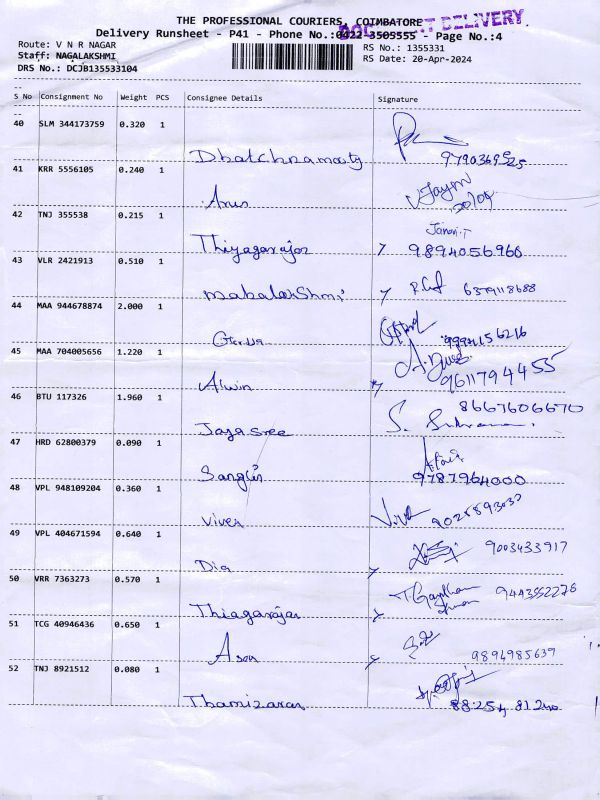 THE PROFESSIONAL COURIERS, COIMBATORE
DELIVERY
Delivery Runsheet - P41 - Phone No.:0422-3505555 - Page No.:4
Route: V N R NAGAR
Staff: NAGALAKSHMI
DRS No.: DCJB135533104
RS No.: 1355331
RS Date: 20-Apr-2024
S No Consignment No Weight PCS Consignee Details Signature
40 SLM 344173759 0.320 1
9790369525
41 KRR 5556105 0.240 1
Arun
20/04
42 TNJ 355538 0.215 1
Janani.T
Thiyagarajan 9894056966
43 VLR 2421913 0.510 1
mahalakshmi 6379118688
44 MAA 944678874 2.000 1
9994156216
45 MAA 704005656 1.220 1
Alwin 9611794455
46 BTU 117326 1.960 1
8667606670
Jayasree
47 HRD 62800379 0.090 1
9787964000
48 VPL 948109204 0.360 1
Vivek
49 VPL 404671594 0.640 1
9003433917
Dia
50 VRR 7363273 0.570 1
Thiagarajan
51 TCG 40946436 0.650 1
9894985639
52 TNJ 8921512 0.080 1
88254 81240